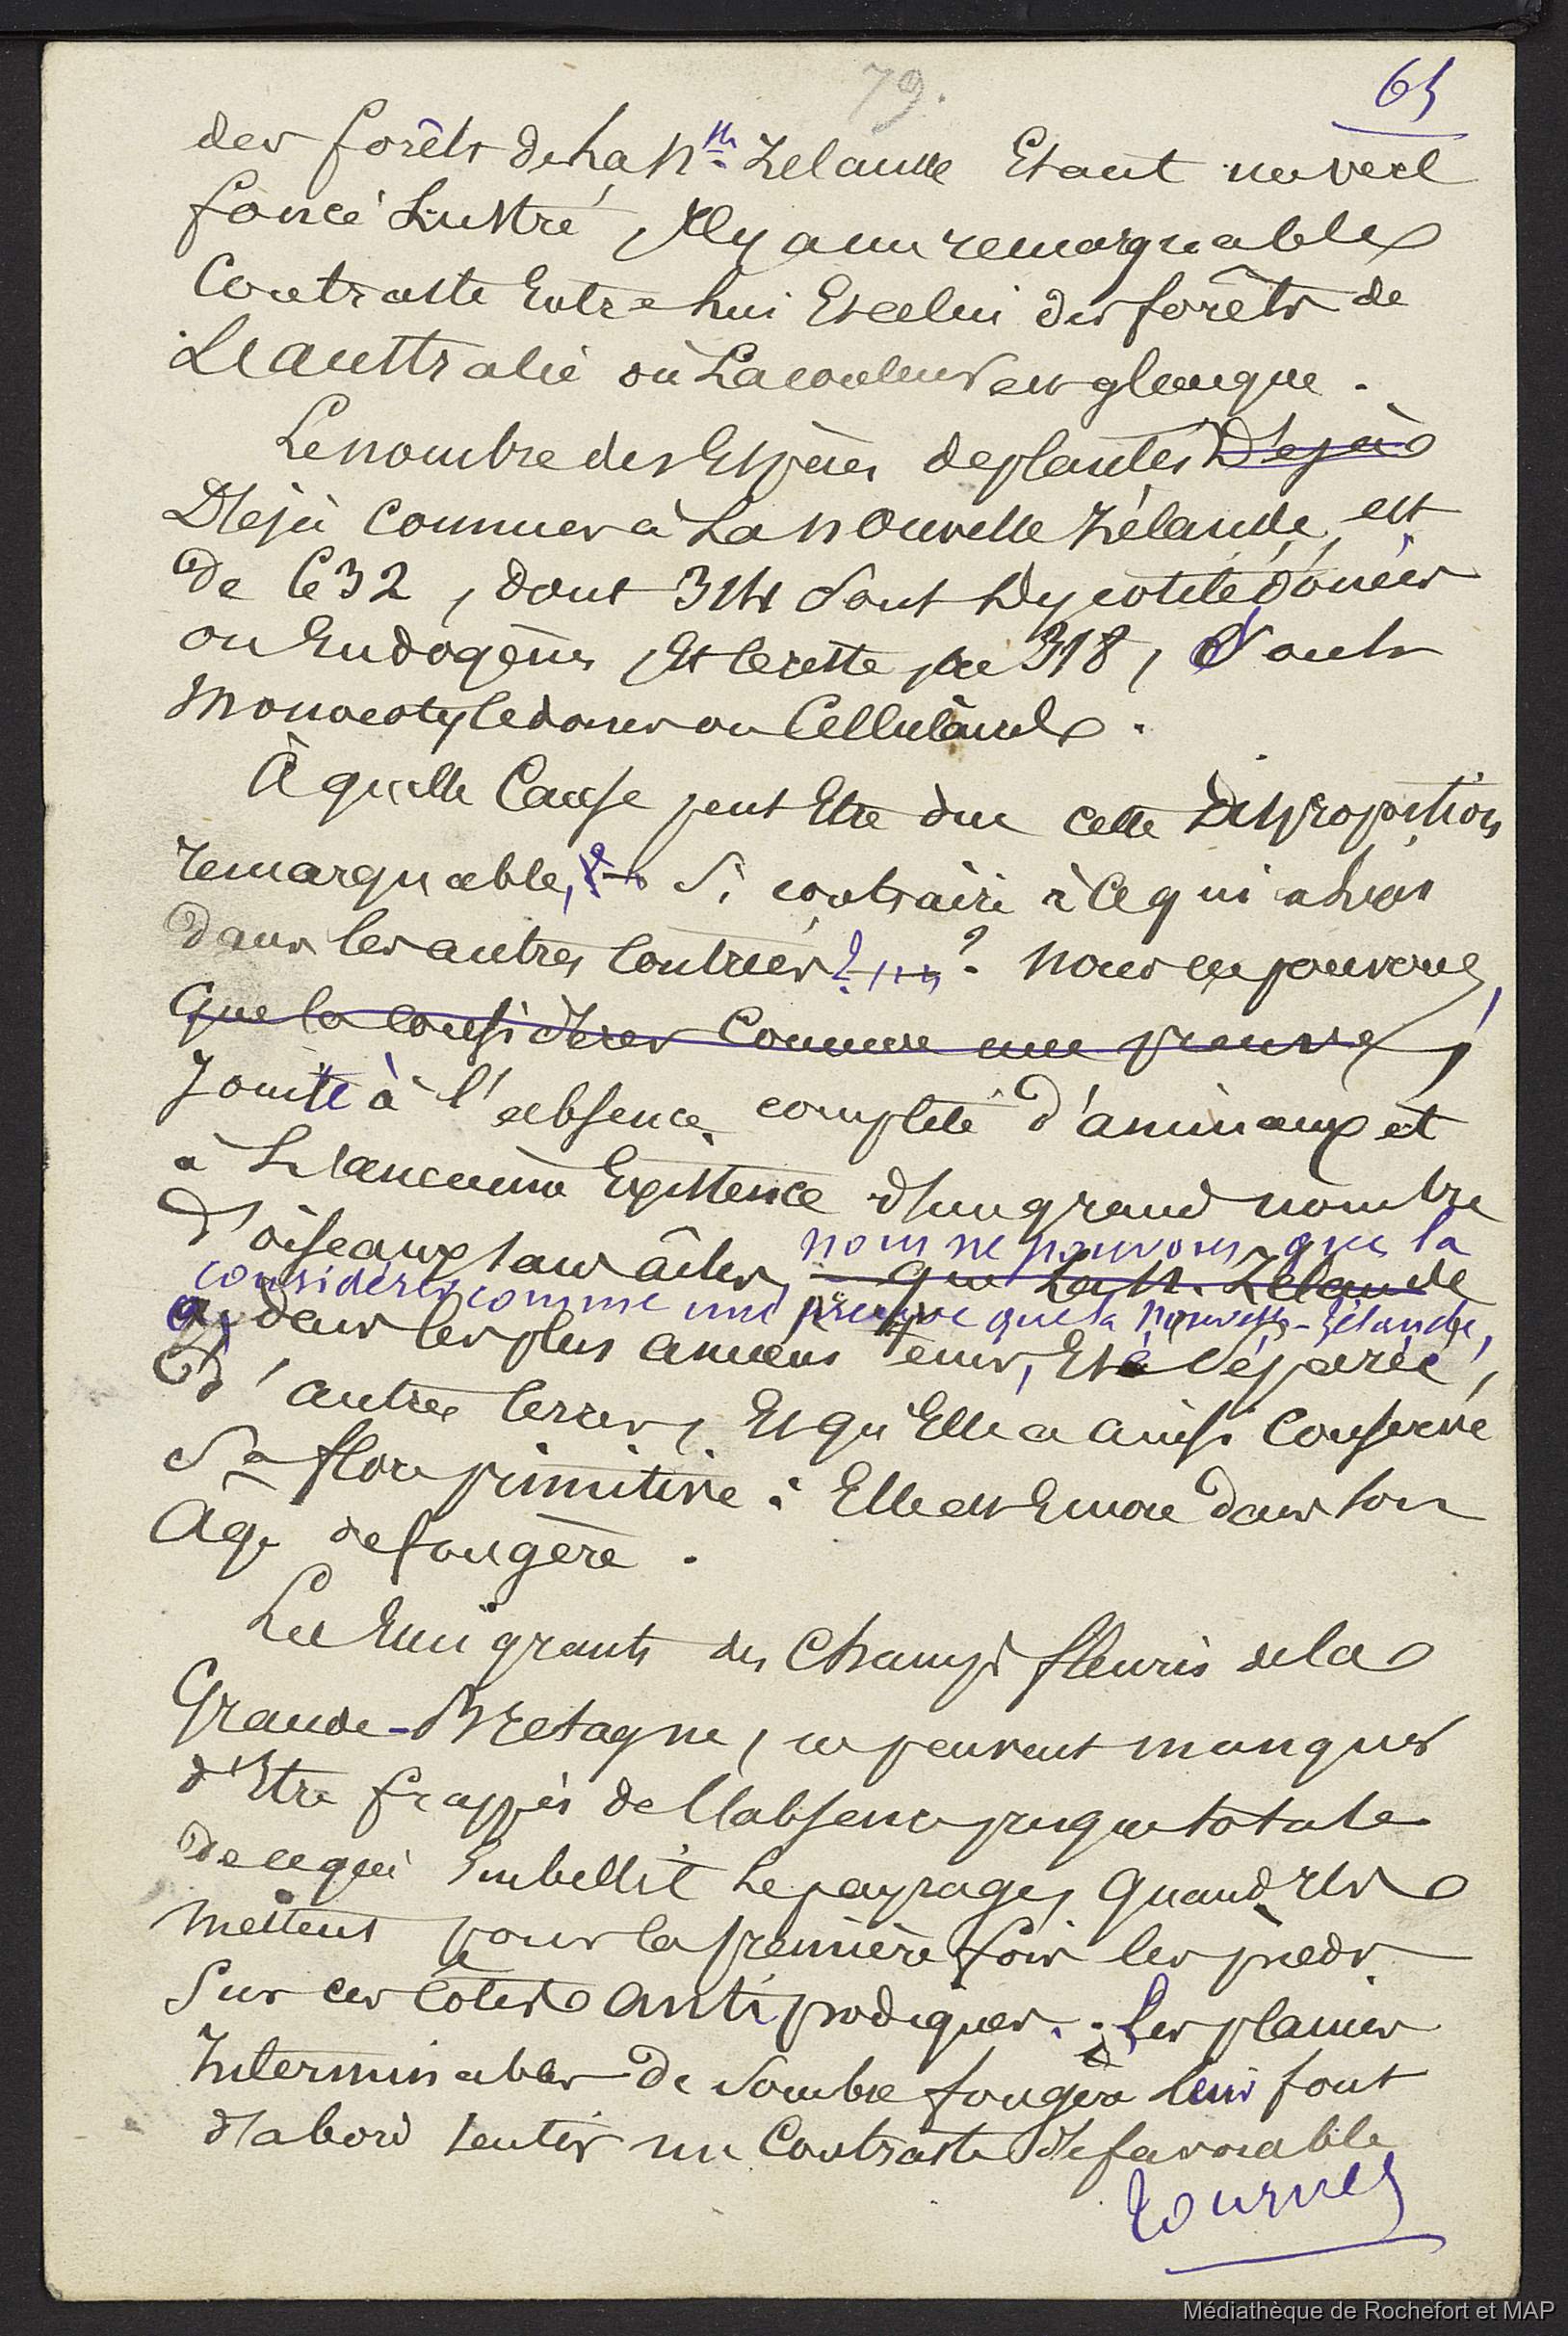 79.
65
des forêts de La Nlle Zelande Etant un vert
foncé Lustré, Il y a un remarquable
Contraste Entre lui Et celui des forêts de
L'austtralie où La couleur est glauque.
Le nombre des Espèces de plantes Déjà
Déjà connues à La Nouvelle Zélande, est
de 632, dont 314 sont Dycotilédonées
ou Endogènes, Et le reste, ou 318, Sont
Monocotyledones ou Cellulaires.
À quelle Cause peut Etre due cette Disproportion
remarquable, Si contraire à Ce qui a lieu
dans les autres Contrées ? Nous ne pouvons
que la considérer Comme une preuve,
Jointe à l'absence complete d'animaux et
à L'ancienne Existence d'un grand nombre
d'oiseaux sans ailes, nous ne pouvons que la
que La N. Zélande
considérer comme une preuve que la nouvelle-Zélande,
a, dans les plus anciens tems, Eté Séparée,
d'autres terres, Et qu'Elle a ainsi Conservé
Sa flore primitive : Elle est Encore dans son
Âge de fougère.
Les Emigrants des Champs fleuris de la
Grande-Bretagne, ne peuvent manquer
d'Etre frappés de l'absence presque totale
de ce qui Embellit Le paysage, quand Ils
mettent pour la première fois les pieds
Sur ces côtes antipodiques. Les plaines
Interminables de Sombre fougère leur font
d'abord sentir un Contraste défavorable
tournez
Médiathèque de Rochefort et MAP